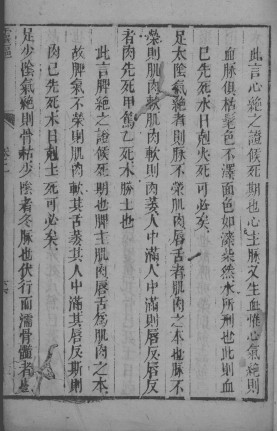 此言心絶之證候死期也心主脉又生血惟心氣絶則
血脉俱枯髦色不澤面色如漆柴然水所刑也此則血
已先死水日剋火死可必矣
足太陰氣絶者則脉不榮肌肉唇舌者肌肉之本也脉不
榮則肌肉軟肌肉軟則肉萎人中滿人中滿則唇反唇反
者肉先死甲篤乙死木勝土也
此言脾絶之證候死期也脾主肌肉唇舌為肌肉之本
故脾氣不榮則肌肉其舌萎其人中滿其唇反斯則
肉已先死木日剋土死可必矣
足少陰氣絶則骨枯少陰者冬脉也伏行而濡骨髓者也